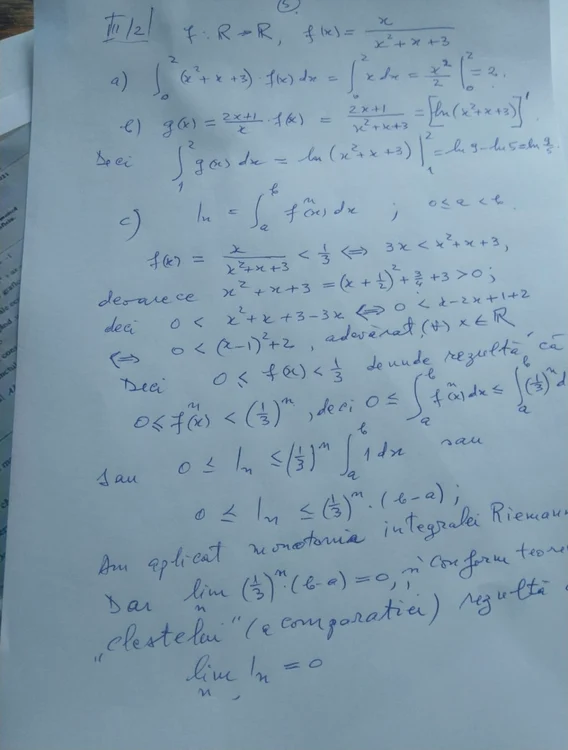 5.
III/2/ f: R → R, f(x) = x/(x²+x+3)
a) ∫₀² (x²+x+3)·f(x) dx = ∫₀² x dx = x²/2 |₀² = 2.
b) g(x) = (2x+1)/x · f(x) = (2x+1)/(x²+x+3) = [ln(x²+x+3)]'
Deci ∫₁² g(x) dx = ln(x²+x+3) |₁² = ln 9 - ln 5 = ln 9/5.
c) Iₙ = ∫ₐᵇ fⁿ(x) dx ; 0 ≤ a < b.
f(x) = x/(x²+x+3) < 1/3 ⟺ 3x < x²+x+3,
deoarece x²+x+3 = (x+1/2)² + 3/4 + 3 > 0;
deci 0 < x²+x+3-3x ⟺ 0 < x-2x+1+2
⟺ 0 < (x-1)²+2, adevărat, (∀) x ∈ R
Deci 0 ≤ f(x) < 1/3 de unde rezultă că
0 ≤ fⁿ(x) < (1/3)ⁿ, deci 0 ≤ ∫ₐᵇ fⁿ(x) dx ≤ ∫ₐᵇ (1/3)ⁿ d
sau 0 ≤ Iₙ ≤ (1/3)ⁿ ∫ₐᵇ 1 dx sau
0 ≤ Iₙ ≤ (1/3)ⁿ · (b-a);
Am aplicat monotonia integralei Riemann
Dar lim n (1/3)ⁿ·(b-a) = 0, conform teore
„clestelui" (a comparatiei) rezultă
lim n Iₙ = 0